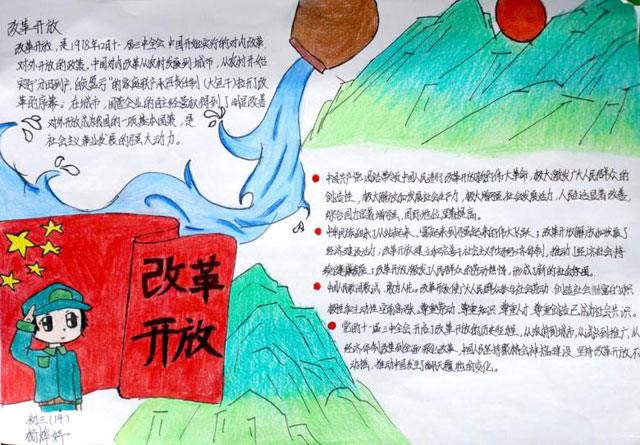 改革开放
改革开放，是1978年12月十一届三中全会中国开始实行的对内改革、
对外开放的政策。中国对内改革从农村发展到城市，从农村开始
实行“分田到户，自负盈亏”的家庭联产承包责任制（大包干）拉开了改
革的序幕。在城市，国营企业的自主经营权得到了明显改善
对外开放成为我国的一项基本国策，是
社会主义事业发展的强大动力。
中国共产党团结带领中国人民进行改革开放新的伟大革命，极大激发广大人民群众的
创造性，极大解放和发展社会生产力，极大增强社会发展活力，人民生活显著改善，
综合国力显著增强，国际地位显著提高。
中华民族迎来了从站起来、富起来到强起来的伟大飞跃；改革开放解放和发展了
经济建设活力；改革开放建立和完善了社会主义市场经济体制，推动了经济社会持
续健康发展；改革开放激发了人民群众的劳动热情，形成了新的社会氛围。
改革开放使广大人民群众参与社会劳动、创造社会财富的积
极性和主动性空前高涨。尊重劳动、尊重知识、尊重人才、尊重创造已成为社会共识。
党的十一届三中全会开启了改革开放的历史征程，从农村到城市，从试点到推广，从
经济体制改革到全面深化改革，中国人民坚持聚精会神搞建设、坚持改革开放不
动摇，推动中国发生了翻天覆地的变化。
改革
开放
初三（14）
杨